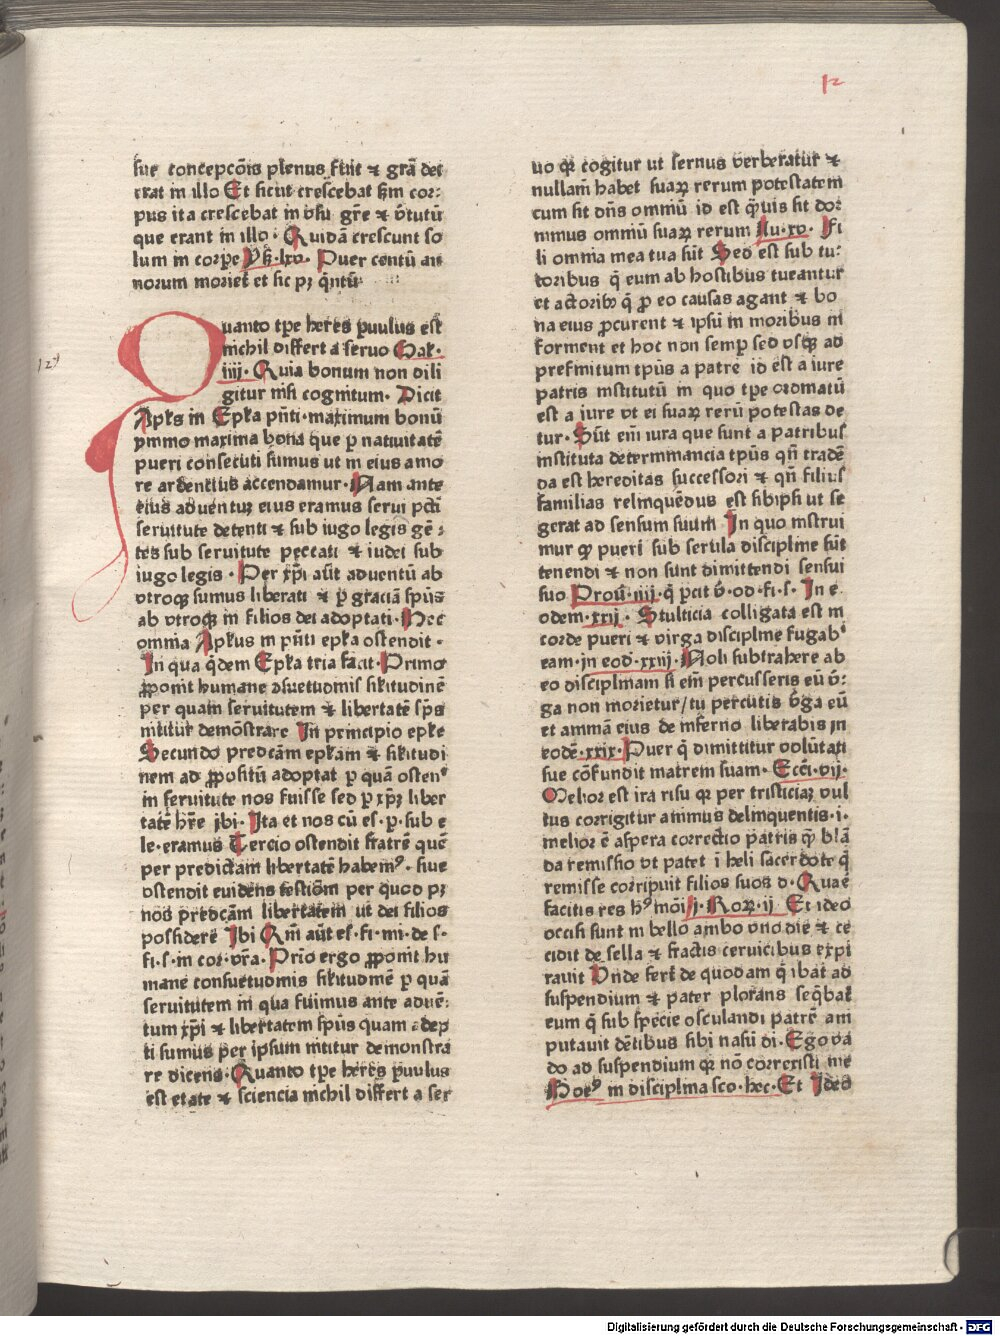 12
sue concepcõis plenus fuit ⁊ grã dei
erat in illo Et sicut crescebat sm cor-
pus ita crescebat in vsu gr̃e ⁊ v̾tutũ
que erant in illo · Quidã crescunt so
lum in corpe Ys · lxv · Puer centũ an
norum moriet̾ et sic pꝫ q̃ntũ
Quanto tp̃e heres paruulus est
nichil differt a seruo Gal ·
iiij · Quia bonum non dili
gitur nisi cognitum · Dicit
Apl̃s in Epl̃a pñti · maximum bonũ
ymmo maxima bona que ꝑ natiuitatẽ
pueri consecuti sumus ut in eius amo
re ardencius accendamur · Nam ante
eius aduentuꝫ eius eramus serui pcti
seruitute detenti ⁊ sub iugo legis gẽ-
tes sub seruitute peccati ⁊ iudei sub
iugo legis · Per xp̃i aũt aduentũ ab
vtroqꝫ sumus liberati ⁊ ꝑ graciã spũs
ab vtroqꝫ in filios dei adoptati · Hec
omnia Apl̃us in pñti epl̃a ostendit ·
In qua q̃dem Epl̃a tria facit · Primo
ꝓponit humane ꝯsuetudinis sil̃itudinẽ
per quam seruitutem ⁊ libertatẽ sp̃s
nititur demõstrare In principio epl̃e
Secundo predcãm epl̃am ⁊ sil̃itudi
nem ad ꝓpositũ adoptat ꝑ quã osten
in seruitute nos fuisse sed ꝑ xp̃ꝫ liber
tatẽ hr̃e ibi · Ita et nos cũ es · p · sub e
le · eramus Tercio ostendit fratrẽ quẽ
per predictam libertatẽ habem⁹ · siue
ostendit euidens testiõm per quod pꝫ
nos predcãm libertatem ut dei filios
possidere Ibi Qm̃ aũt es · fi · mi · de s ·
fi · s · in cor · vr̃a · Prio ergo ꝓponit hu
mane consuetudinis sil̃itudinẽ ꝑ quã
seruitutem in qua fuimus ante aduẽ-
tum xp̃i ⁊ libertatem spũs quam adep
ti sumus per ipsum nititur demonstra
re dicens · Quanto tp̃e heres paruulus
est etate ⁊ sciencia nichil differt a ser
uo qꝛ cogitur ut seruus verberatur ⁊
nullam habet suaꝝ rerum potestatem
cum sit dñs omniũ id est q̃uis sit do-
minus omniũ suaꝝ rerum Lu · xv · Fi
li omnia mea tua sũt Sed est sub tu-
toribus q̃ eum ab hostibus tueantur
et actorib⁹ q̃ ꝑ eo causas agant ⁊ bo
na eius ꝓcurent ⁊ ipsũ in moribus in
forment et hoc non semꝑ sed vsqꝫ ad
prefinitum tpũs a patre id est a iure
patris institutũ in quo tp̃e ordinatũ
est a iure vt ei suaꝝ rerũ potestas de
tur · Sũt em̃ iura que sunt a patribus
instituta determinancia tpũs qñ tradẽ
da est hereditas successori ⁊ qñ filius
familias relinquẽdus est sibipsi ut se
gerat ad sensum suum In quo instrui
mur qꝙ pueri sub ferula discipline sũt
tenendi ⁊ non sunt dimittendi sensui
suo Prou · iiij · q̃ pcit v̾ · od · fi · s · In e
odem · xxij · Stulticia colligata est in
corde pueri ⁊ virga discipline fugab
eam · in eod · xxiij · Noli subtrahere ab
eo disciplinam si em̃ percusseris eũ v̾-
ga non morietur / tu percutis v̾ga eũ
et ammã eius de inferno liberabis in
eodẽ · xxix · Puer q̃ dimittitur volũtati
sue cõfundit matrem suam · Ecci · vij ·
Melior est ira risu qꝛ per tristiciaꝫ vul
tus corrigitur animus delinquentis · i ·
melior ẽ aspera correctio patris q̃ blã
da remissio vt patet i heli sacerdote q̃
remisse corripuit filios suos d · Quae
facitis res h⁹ mõi j · Roꝝ · ij Et ideo
occisi sunt in bello ambo vno die ⁊ ce
cidit de sella ⁊ fractis ceruicibus expi
rauit Vnde fert̾ de quodam q̃ ibat ad
suspendium ⁊ pater plorans seq̃bat̾
eum q̃ sub specie osculandi patrẽ am
putauit dẽtibus sibi nasũ di · Ego va
do ad suspendium qꝛ nõ correxisti me
Boe⁹ in disciplina sco · hec · Et Ideo
Digitalisierung gefördert durch die Deutsche Forschungsgemeinschaft - DFG